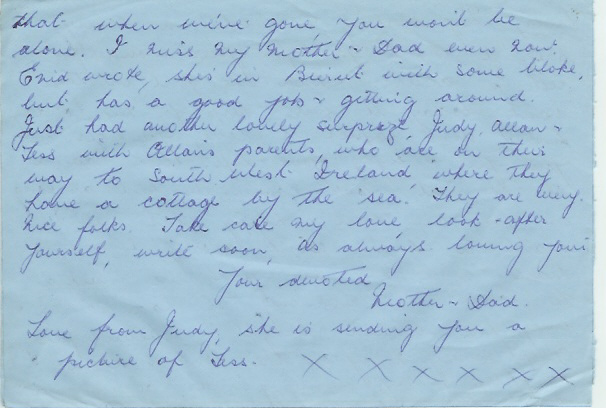 that when we've gone, you won't be
alone. I miss my Mother + Dad even now.
Enid wrote, she's in Beirut with some bloke,
but has a good job + getting around.
Just had another lovely surprize, Judy, Allan +
Tess with Allan's parents, who are on their
way to South West Ireland, where they
have a cottage by the sea. They are very
nice folks. Take care my love, look after
yourself, write soon, as always loving you
Your devoted
Mother + Dad.
Love from Judy, she is sending you a
picture of Tess. X X X X X X